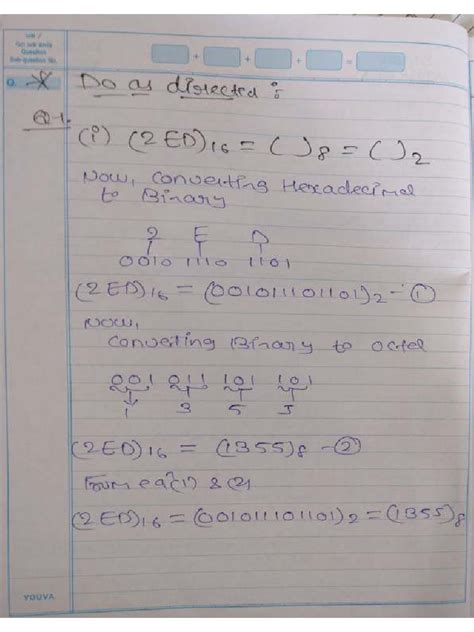 Question
Q.
Do as directed :
Q-1.
(i) (2ED)16 = ( )8 = ( )2
Now, Converting Hexadecimal
to Binary
2 E D
0010 1110 1101
(2ED)16 = (001011101101)2 - ①
Now,
Converting Binary to octal
001 011 101 101
1 3 5 5
(2ED)16 = (1355)8 - ②
From eq(1) & (2)
(2ED)16 = (001011101101)2 = (1355)8
YOUVA